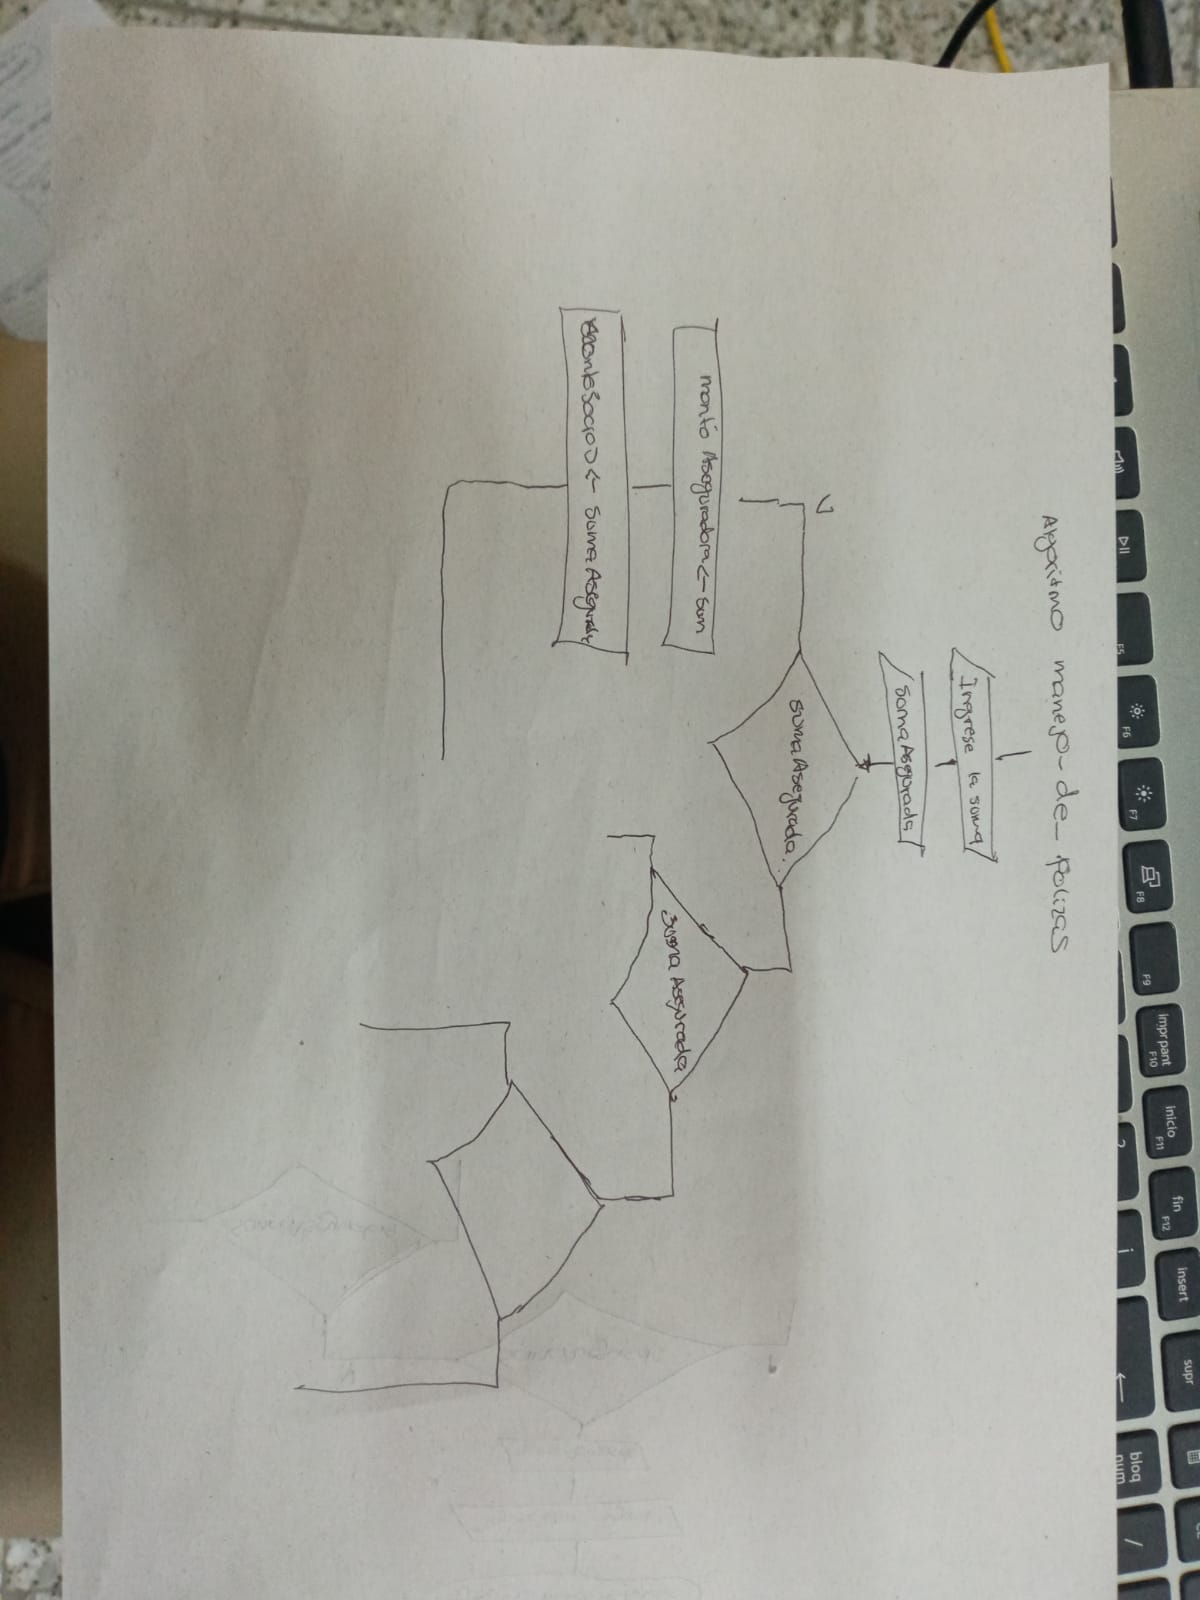 Algoritmo manejo-de-polizas
Ingrese la suma
SumaAsegurada
SumaAsegurada.
V
monto Aseguradora <- sum
<- sumaAsegurada
suma Asegurada
F5
F6
F7
F8
F9
impr pant
F10
inicio
F11
fin
F12
insert
supr
bloq
num
/